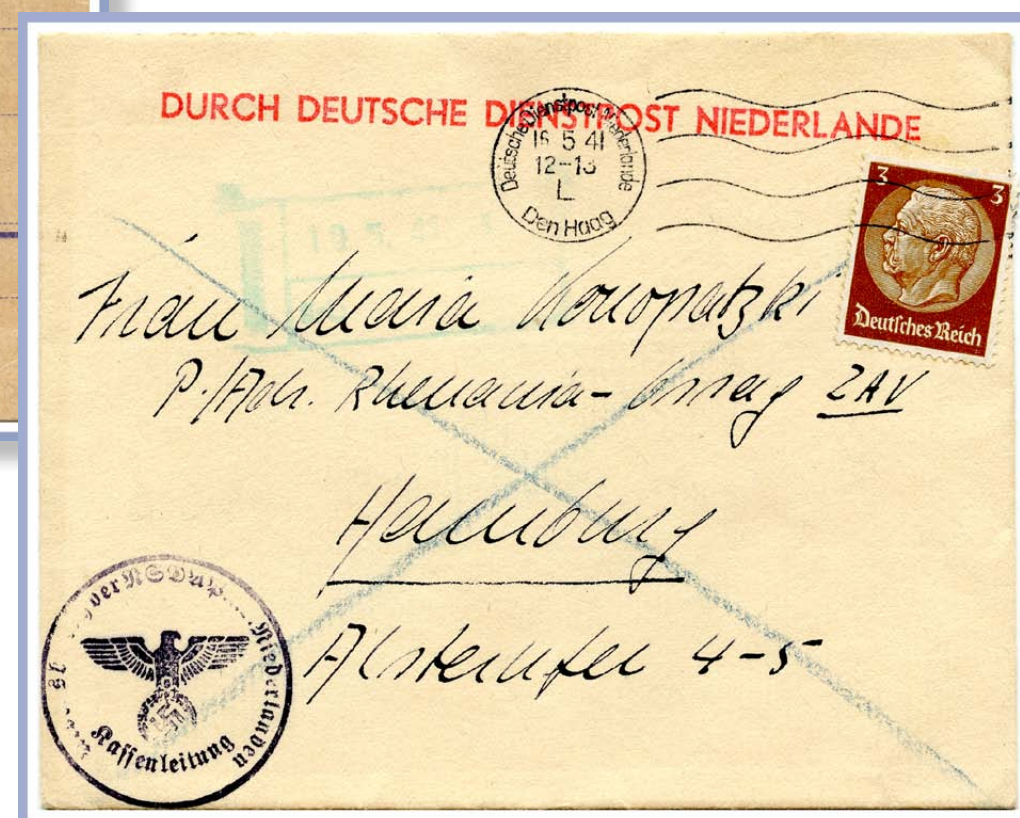 DURCH DEUTSCHE DIENSTPOST NIEDERLANDE
Deutsche Dienstpost Niederlande
16 5 41
12-13
L
Den Haag
3 3
Deutsches Reich
Frau Maria Konopatzki
P./Adr. Rhenania-Ossag ZAV
Hamburg
Alsterufer 4-5
der NSDAP Niederlanden
Kassenleitung